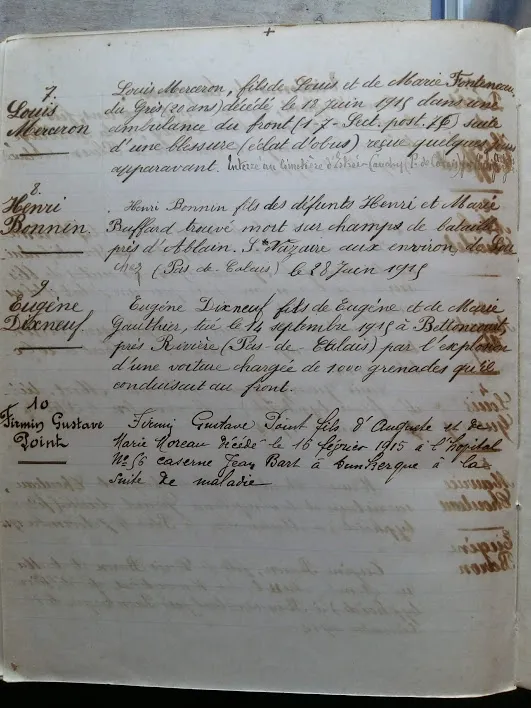 +
7.
Louis
Merceron
Louis Merceron, fils de Louis et de Marie Fonteneau,
du Gris (20 ans) décédé le 12 juin 1915 dans une
ambulance du front (1-7- Sect. post. 76) suite
d'une blessure (éclat d'obus) reçue quelques jours
apparavant. Interré au cimetière d'Estrée-Cauchy
8.
Henri
Bonnin.
Henri Bonnin fils des défunts Henri et Marie
Buffard trouvé mort sur champs de bataille
près d'Ablain. St Nazaire aux environs de Sou
chez (Pas-de-Calais) le 28 Juin 1915
9
Eugène
Dixneuf.
Eugène Dixneuf fils de Eugène et de Marie
Gauthier, tué le 14 septembre 1915 à
près Rivière (Pas-de-Calais) par l'explosion
d'une voiture chargée de 1000 grenades qu'il
conduisait au front.
10
Firmin Gustave
Point
Firmin Gustave Point fils d'Auguste et de
Marie Moreau décédé le 16 février 1915 à l'hopital
No 56 caserne Jean Bart à Dunkerque à la
suite de maladie